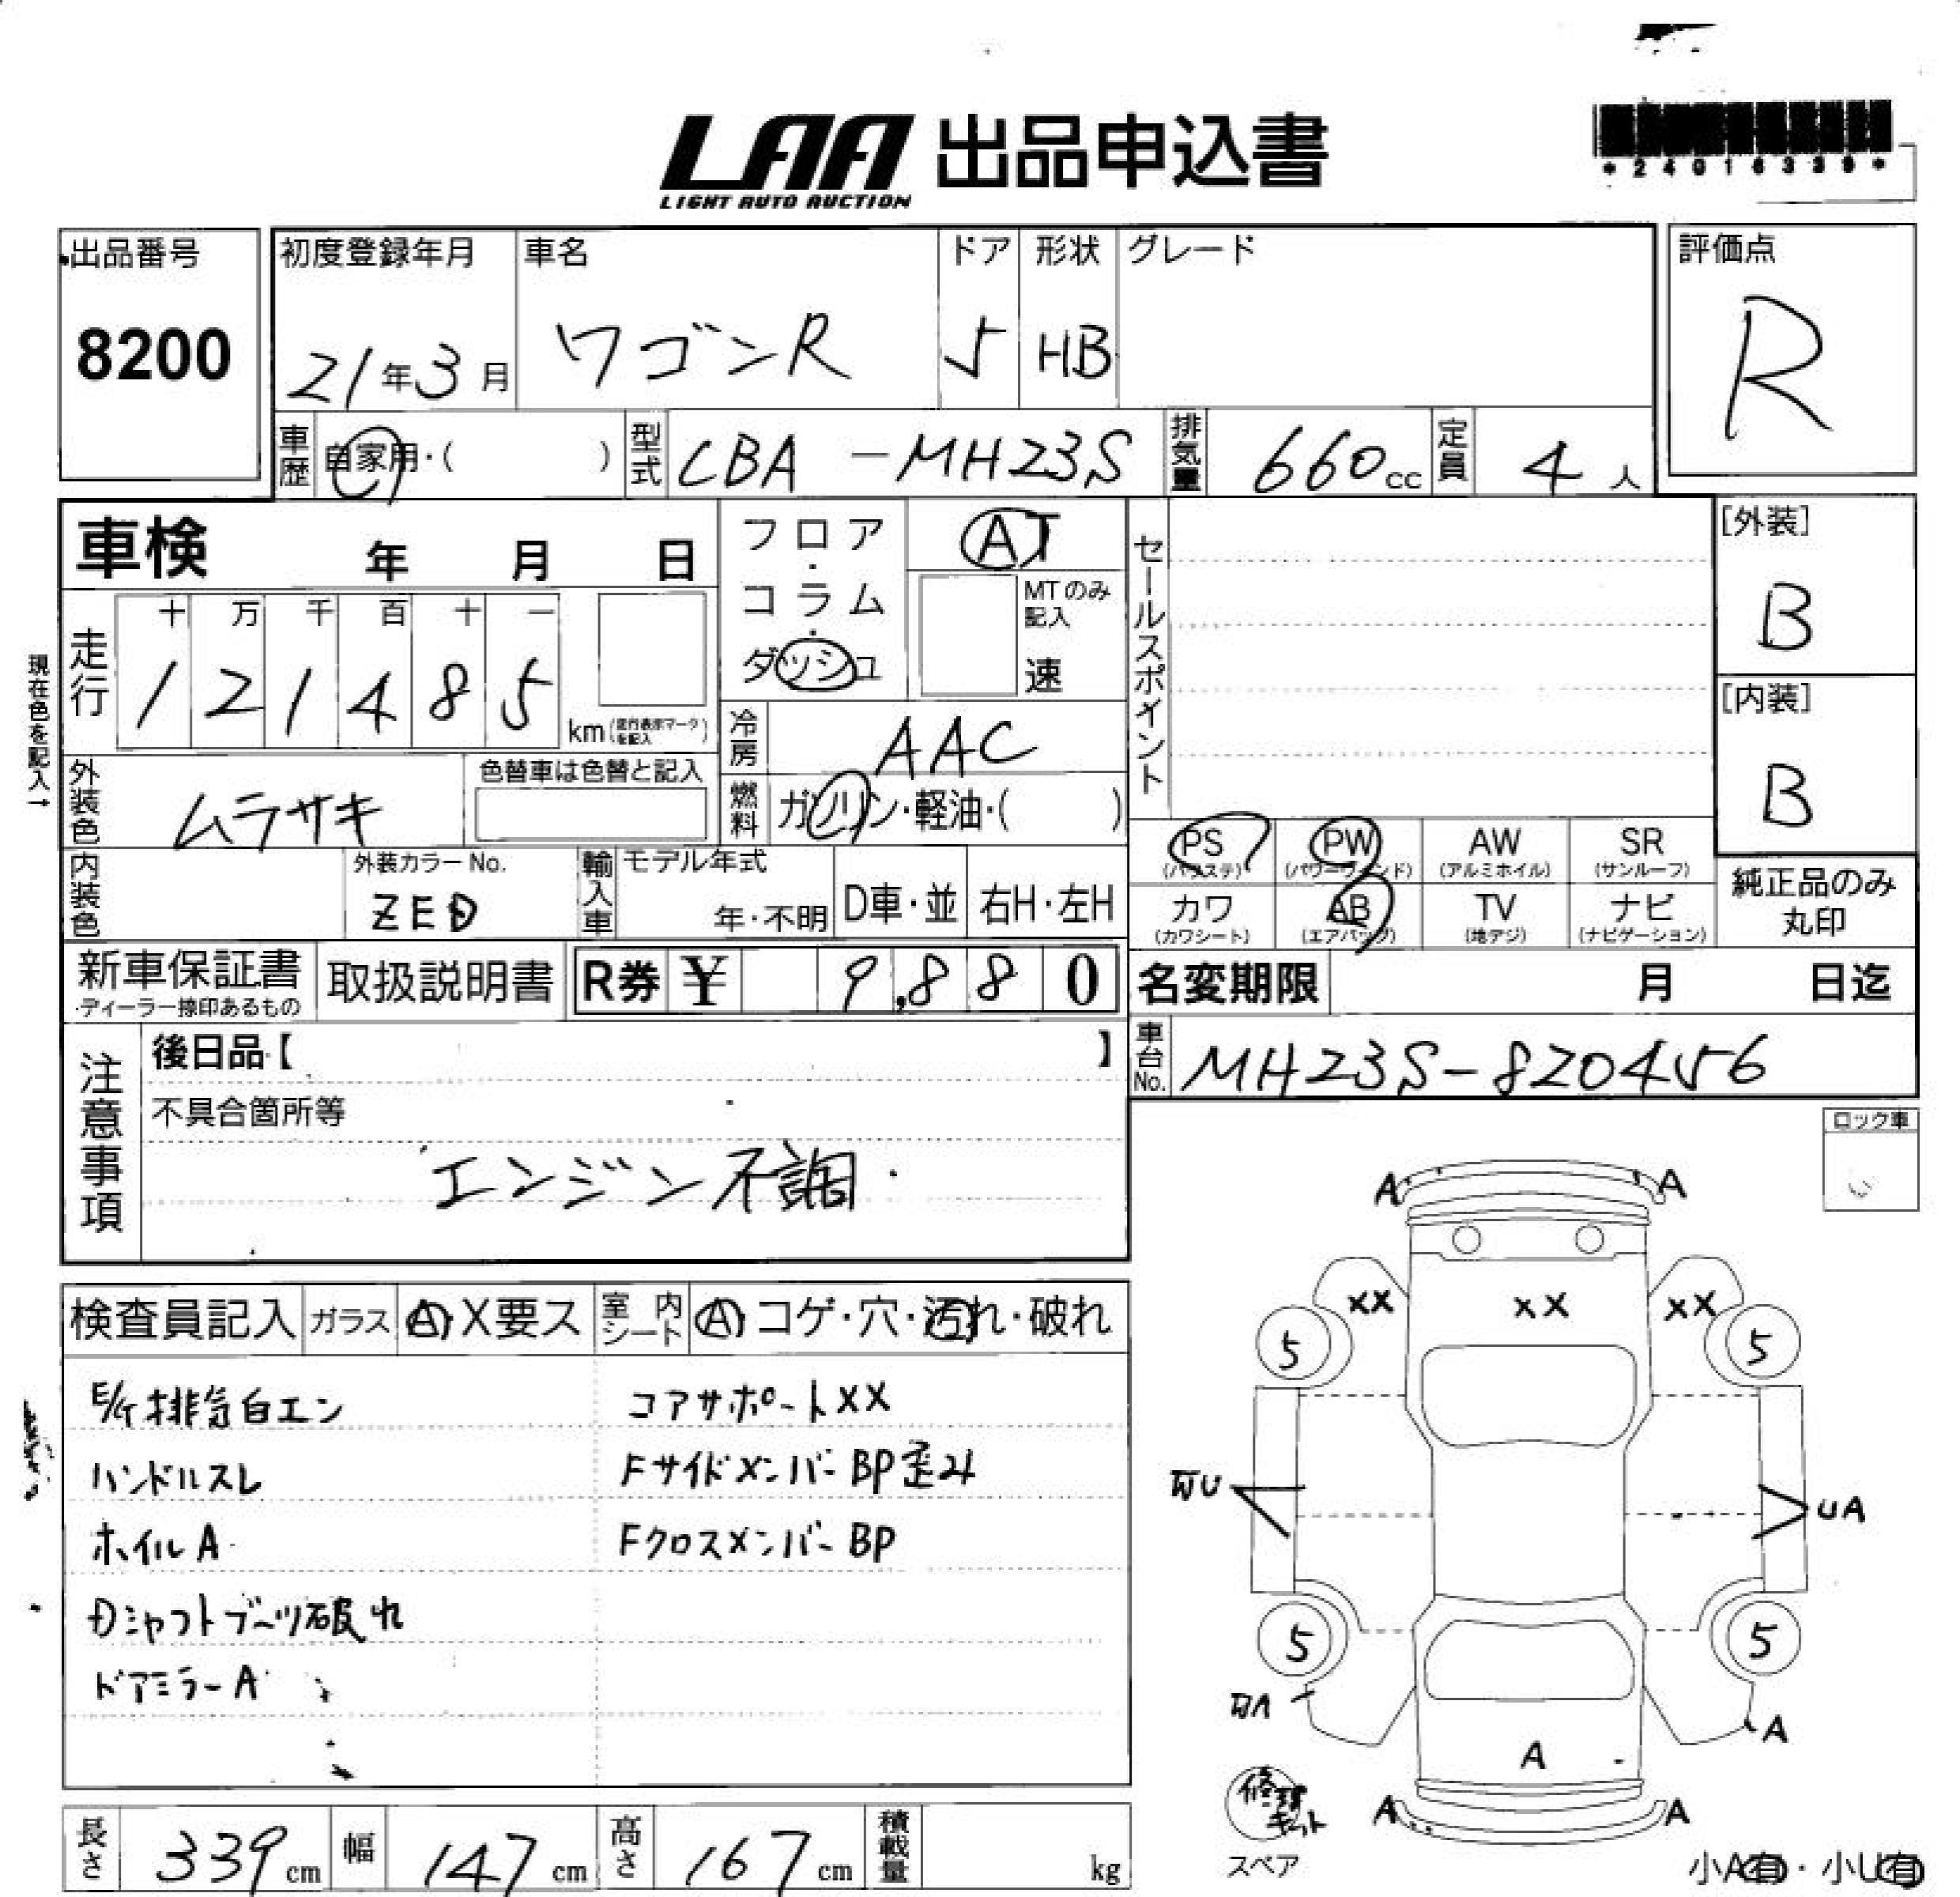 LAA 出品申込書
LIGHT AUTO AUCTION
*24016339*
出品番号
8200
初度登録年月
21年3月
車名
ワゴンR
ドア
5
形状
HB
グレード
評価点
R
車歴
自家用・( )
型式
CBA-MH23S
排気量
660cc
定員
4人
車検 年 月 日
フロア・コラム・ダッシュ
AT
MTのみ記入
速
セールスポイント
[外装]
B
[内装]
B
現在色を記入→
走行
十 万 千 百 十 一
1 2 1 4 8 5
km(走行表示マークを記入)
冷房
AAC
燃料
ガソリン・軽油・( )
外装色
ムラサキ
色替車は色替と記入
内装色
外装カラーNo.
ZED
輸入車
モデル年式
年・不明
D車・並
右H・左H
PS
(パワステ)
PW
(パワーウィンド)
AW
(アルミホイル)
SR
(サンルーフ)
カワ
(カワシート)
AB
(エアバッグ)
TV
(地デジ)
ナビ
(ナビゲーション)
純正品のみ
丸印
新車保証書
・ディーラー捺印あるもの
取扱説明書
R券 ¥ 9,880
名変期限 月 日迄
車台No.
MH23S-820456
注意事項
後日品【 】
不具合箇所等
エンジン不調
ロック車
検査員記入
ガラス
A・X要ス
室内シート
A・コゲ・穴・汚れ・破れ
E/G排気白エン
ハンドルスレ
ホイルA
Dシャフトブーツ破れ
ドアミラーA
コアサポートXX
FサイドメンバーBP歪み
FクロスメンバーBP
A A
XX XX XX
5 5
UA
5 5
A
A
A A
修理キット
スペア
小A有・小U有
長さ
339cm
幅
147cm
高さ
167cm
積載量
kg